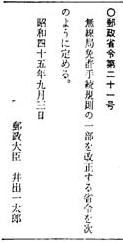 ○郵政省令第二十一号
無線局免許手続規則の一部を改正する省令を次
のように定める。
昭和四十五年九月三日
郵政大臣　井出一太郎